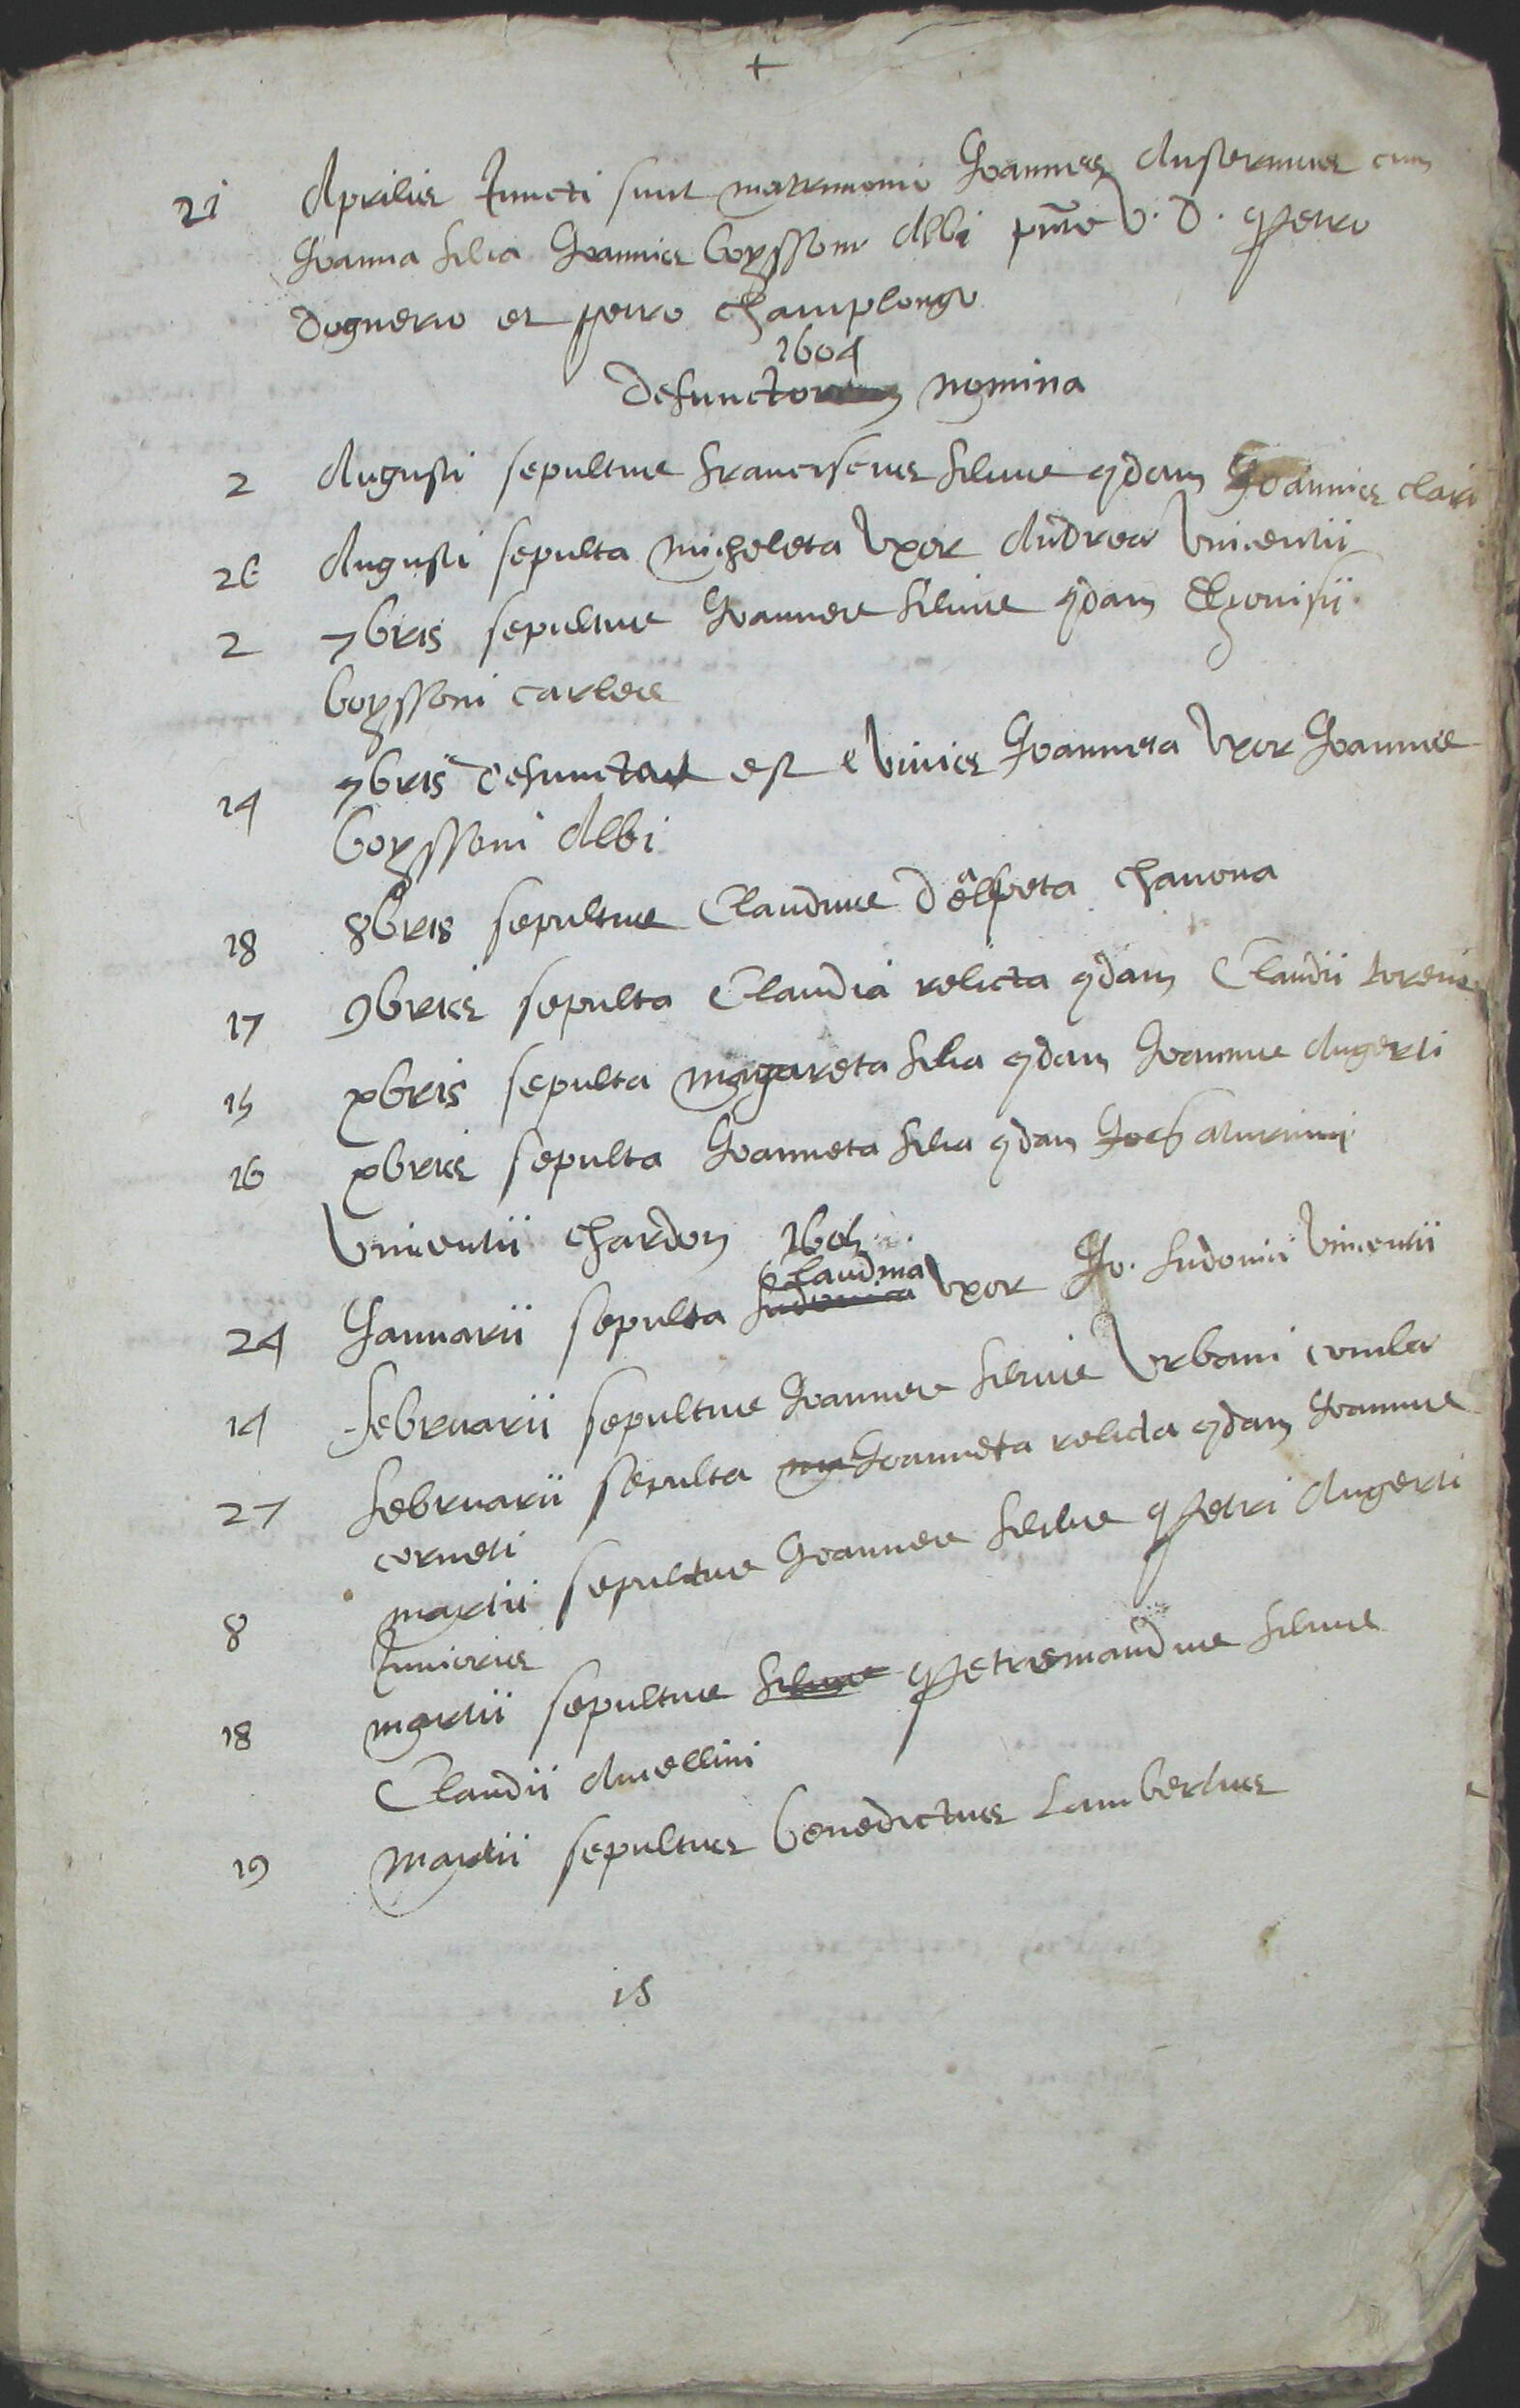 +
21 Aprilis Juncti sunt matrimonio Joannes Ansermus cum
Joanna filia Joannis boyssoni Albi pnte V. D. Petro
dognerio et petro champlongo
1604
Defunctorum nomina
2 Augusti sepultus franciscus filius qdam Joannis clari
26 Augusti sepulta micheleta Vxor Andreæ Vincentii
2 7bris sepultus Joannes filius qdam Dyonisii
boyssoni carles
14 7bris defuncta est e Viuis Joanneta Vxor Joannis
boyssoni Albi
18 8bris sepultus Claudius delpeta chanona
17 9bris sepulta Claudia relicta qdam Claudii
15 xbris sepulta margareta filia qdam Joannis Augerti
16 xbris sepulta Joanneta filia qdam Saturnini
Vincentii chardon 1605
Claudina
24 Januarii sepulta Ludouica Vxor Jo. Ludouici Vincentii
14 februarii sepultus Joannes filius Vrbani
27 februarii sepulta Joanneta relicta qdam Joannis
corneti
8 martii sepultus Joannes filius Petri Augerti
Junioris
18 martii sepultus filius Petremandus filius
Claudii Auellini
19 martii sepultus benedictus Lambertus
15